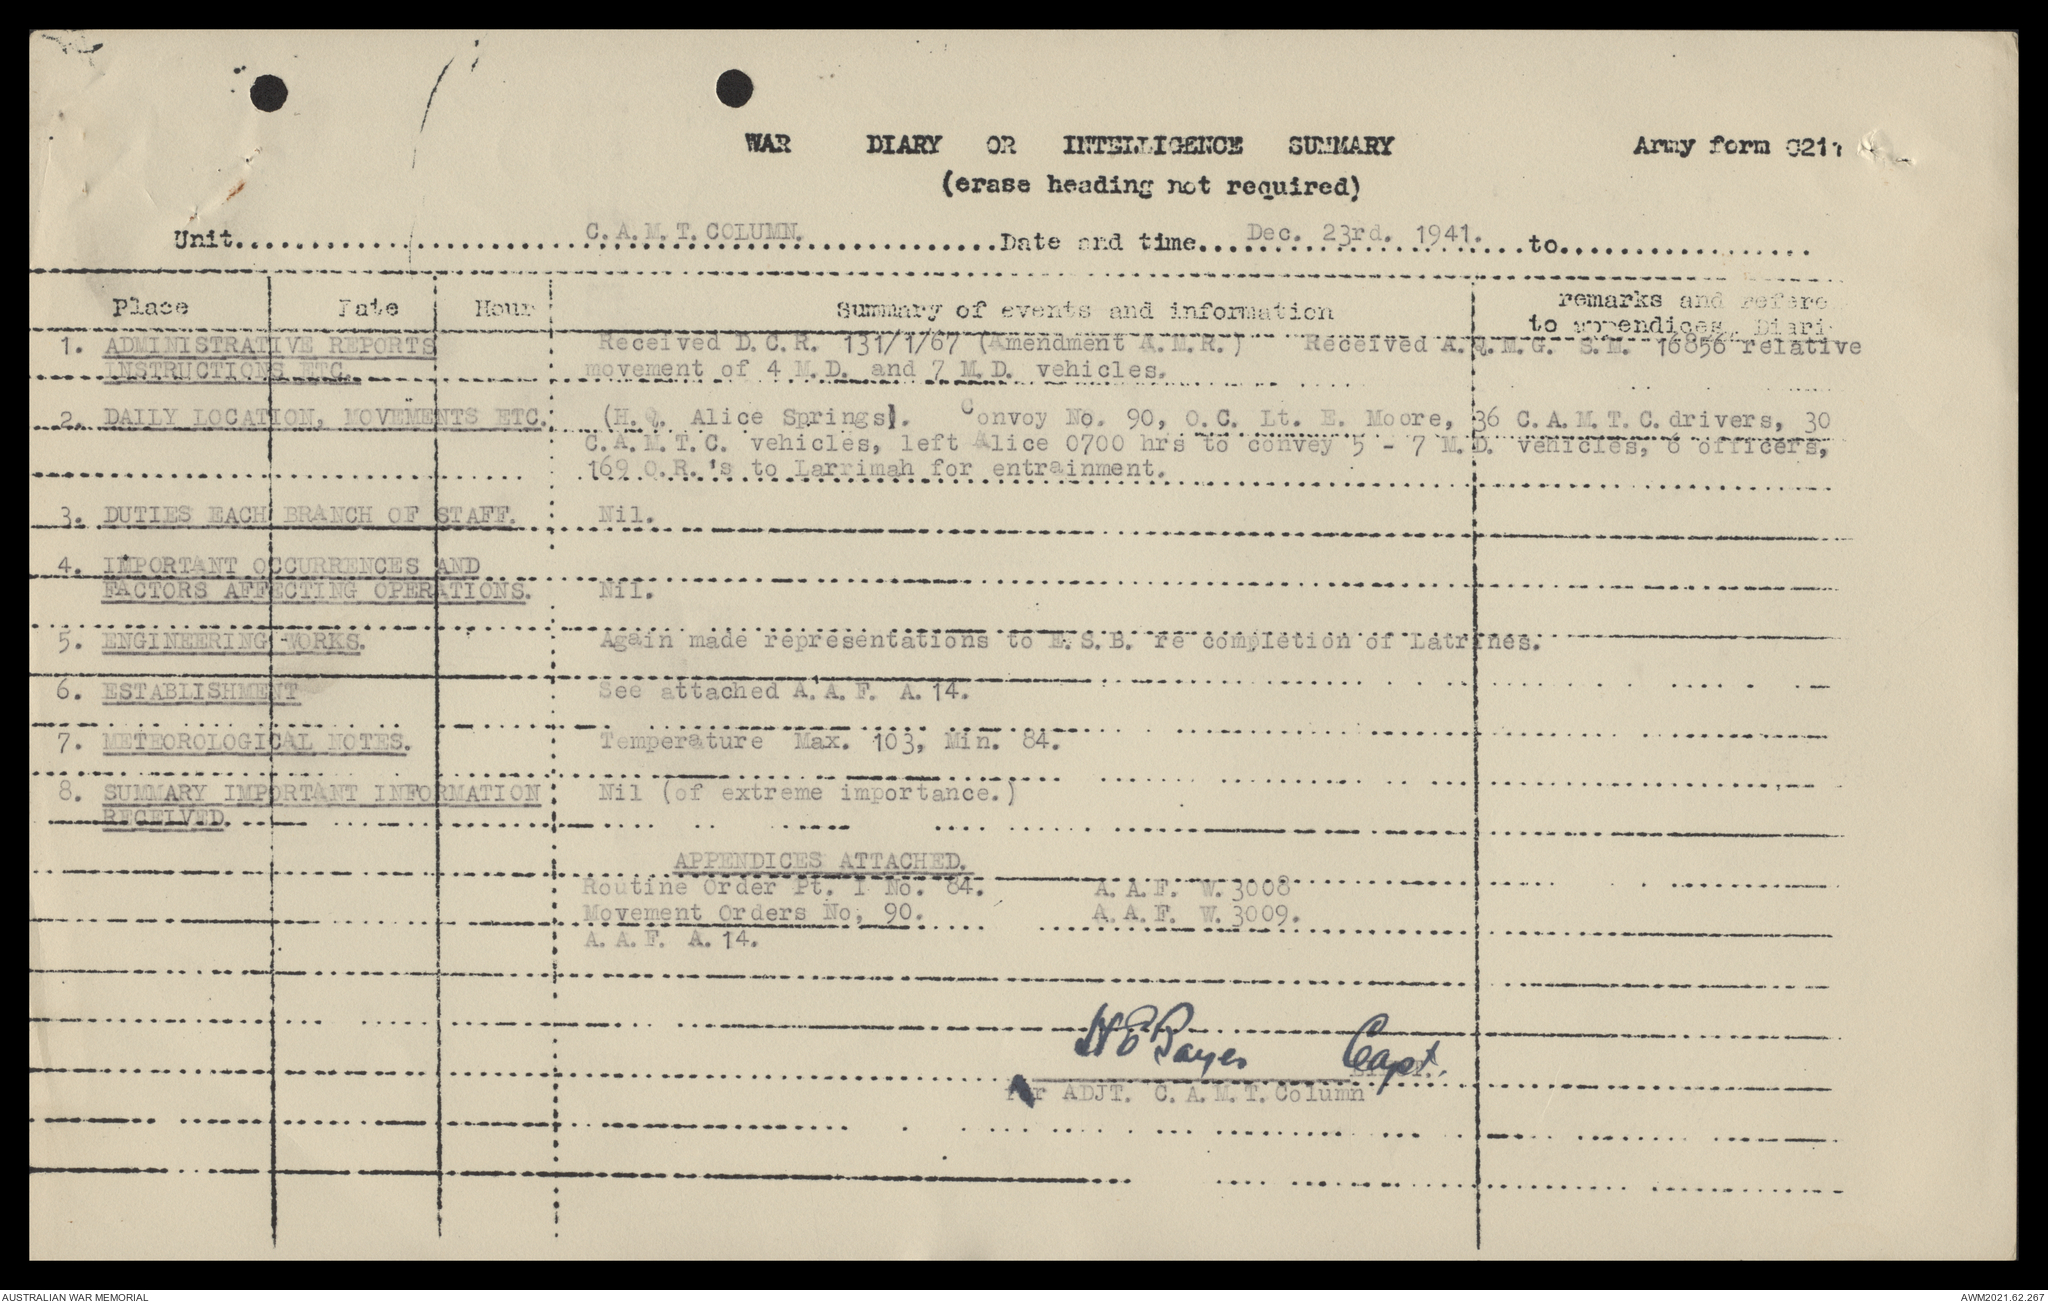 WAR DIARY OR INTELLIGENCE SUMMARY Army form C217
(erase heading not required)
Unit.......C.A.M.T.COLUMN.......Date and time....Dec. 23rd. 1941....to.......
Place Date Hour Summary of events and information remarks and refere
to appendices. Diari
1. ADMINISTRATIVE REPORTS Received D.C.R. 131/1/67 (Amendment A.M.R.) Received A.Q.M.G. S.M. 16856 relative
INSTRUCTIONS ETC. movement of 4 M.D. and 7 M.D. vehicles.
2. DAILY LOCATION, MOVEMENTS ETC. (H.Q. Alice Springs). Convoy No. 90, O.C. Lt. E. Moore, 36 C.A.M.T.C. drivers, 30
C.A.M.T.C. vehicles, left Alice 0700 hrs to convey 5 - 7 M.D. vehicles, 6 officers,
169 O.R.'s to Larrimah for entrainment.
3. DUTIES EACH BRANCH OF STAFF. Nil.
4. IMPORTANT OCCURRENCES AND
FACTORS AFFECTING OPERATIONS. Nil.
5. ENGINEERING WORKS. Again made representations to E.S.B. re completion of Latrines.
6. ESTABLISHMENT See attached A.A.F. A.14.
7. METEOROLOGICAL NOTES. Temperature Max. 103, Min. 84.
8. SUMMARY IMPORTANT INFORMATION Nil (of extreme importance.)
RECEIVED.
APPENDICES ATTACHED.
Routine Order Pt. I No. 84. A.A.F. W.3008
Movement Orders No, 90. A.A.F. W.3009.
A.A.F. A.14.
H E Bayes Capt.
For ADJT. C.A.M.T.Column
AUSTRALIAN WAR MEMORIAL AWM2021.62.267